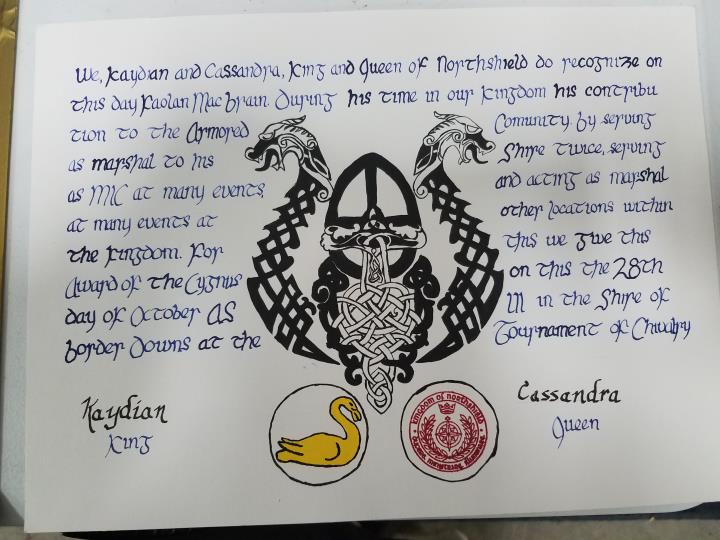 We, Kaydian and Cassandra, King and Queen of Northshield do recognize on
this day Faolan Mac Brain. During his time in our kingdom his contribu
tion to the Armored Comunity. By serving
as marshal to his Shire twice, serving
as MIC at many events, and acting as marshal
at many events at other locations within
the kingdom. For this we give this
Award of the Cygnus on this the 28th
day of October AS LII in the Shire of
Border Downs at the Tournament of Chivalry
Kaydian
King
Cassandra
Queen
kingdom of northshield